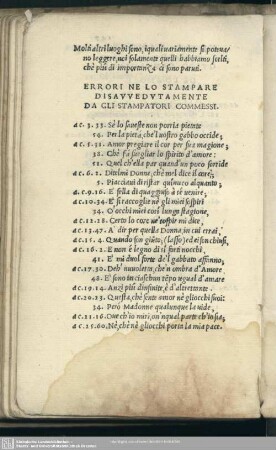 Molti altri luoghi sono, iquali uariamente si poteua/
no leggere, noi solamente quelli habbiamo scelti,
che piu di importanza ci sono paruti.
ERRORI NE LO STAMPARE
DISAVVEDVTAMENTE
DA GLI STAMPATORI COMMESSI.
a c. 3. 33. Sè lo faceste non porria piente
54. Per la pietà, che'l nostro gabbo occide;
a c. 5. 31. Amor pregiare il cor per sua magione;
38. Chè fa suegliar lo spirito d'amore:
51. Quel ch'ella par quand'un poco sorride
a c. 6. 2. Ditelmi Donne, chè mel dice il core;
5. Piacciaui di ristar qui meco alquanto;
a c. 9. 16. E sella di qua giuso à rè uenire;
a c. 10. 34. E' si raccoglie nè gli miei sospiri
34. O'occhi miei così lunga stagione,
a c. 12. 18. Certo lo cor
a c. 13. 47. A' dir per quelle Donna, in cui errai;
a c. 15. 4. Quando son giùto, (lasso) ed ei son chiusi,
a c. 16. 2. E non è legno di sì forti nocchi
41. E' mi duol forte del gabbato affanno,
a c. 17. 30. Deh' nuuoletta, che'n ombra d'Amore
48. E' sono in ciaschun tẽpo ugual d'amare
a c. 19. 14. Anzi piu d'infinite, è d'altrettante
a c. 20. 23. Questa, chè sente amor nè gliocchi suoi:
34. Però Madonne qualunque la uide,
a c. 21. 16. Que ch'io miri, on'n qual parte ch'io sia,
a c. 25. 60. Nè, chè nè gliocchi porta la mia pace.